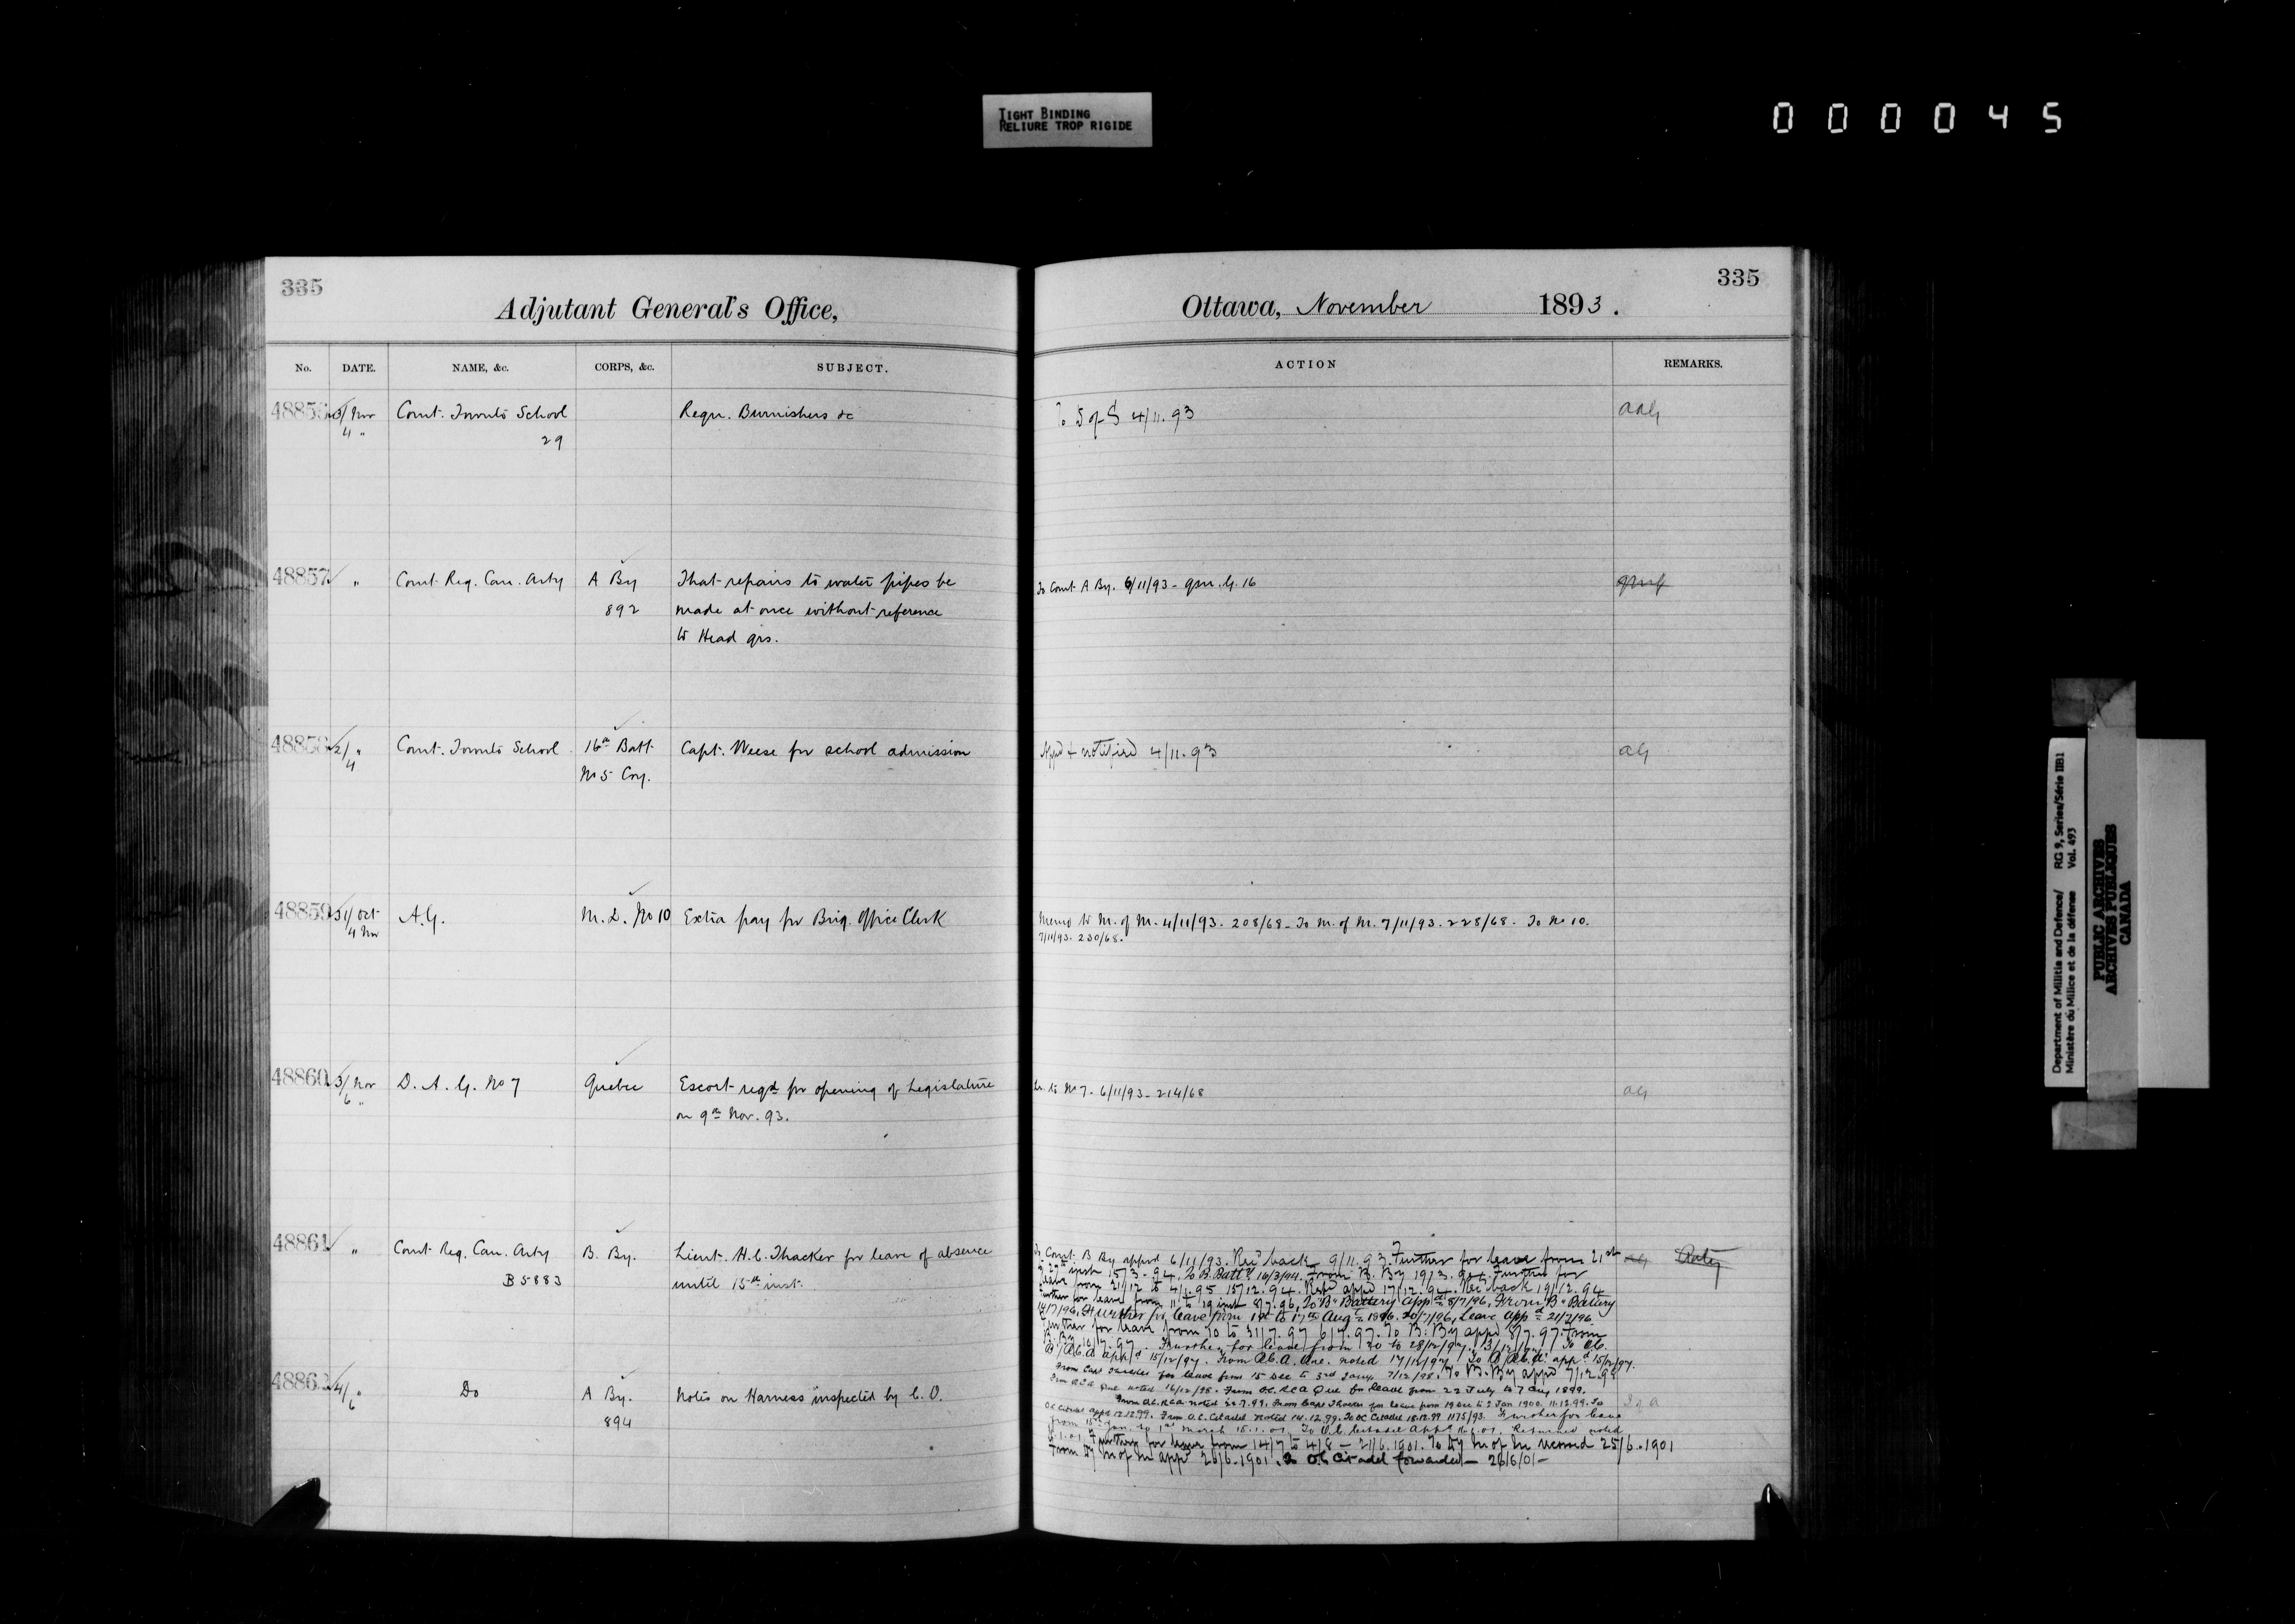 TIGHT BINDING
RELIURE TROP RIGIDE
000045
335
Adjutant General's Office,
No. DATE. NAME, &c. CORPS, &c. SUBJECT.
48856 3/ Nov Comt. Toronto School Regn. Burnishers &c
4 " 29
48857 " Comt Reg. Can. Arty A By That repairs to water pipes be
892 made at once without reference
to Head qrs.
48858 2/ " Comt. Toronto School 16th Batt Capt. Weese for school admission
4 No 5 Coy.
48859 31/ Oct A.G. M.D. No 10 Extra pay for Brig. Office Clerk
4 Nov
48860 3/ Nov D. A. G. No 7 Quebec Escort reqd for opening of Legislature
6 " on 9th Nov. 93.
48861 " Comt Reg. Can. Arty B. By. Lieut. H.C. Thacker for leave of absence
B 5883 until 15th inst.
48862 4/ " Do A By. Notes on Harness inspected by C.O.
6 894
335
Ottawa, November 1893.
ACTION REMARKS.
To S of S 4/11.93 AAG
To Comt A By. 6/11/93 - qm.G.16 qmg
Appd & notified 4/11.93 AG
Memo to M. of M. 4/11/93. 208/68 - To M. of M. 7/11/93. 228/68. To No 10.
7/11/93. 230/68.
to No 7. 6/11/93 - 214/68 AG
To Comt B By appvd 6/11/93. Recd back 9/11.93. Further for leave from 21st
inst 15/3.94. To B. Batty 16/3/94. From B. By 19/3.94. Further for
leave from 21/12 to 4/1.95 15/12.94. appd 17/12.94. Recd back 19/12.94
Further for leave from 11 to 19 inst 8/7.96, To "B" Battery appd 8/7/96, From "B" Battery
14/7/96, Further for leave from 1st to 17th Augt 1896. 20/7/96, Leave appd 21/7/96.
Further for leave from 20 to 31/7.97 6/7.97. To B. By appd 8/7.97. From
B. By 10/7.97. Further for leave from 20 to 28/12/97, 13/12/97. To O.C.
appd 15/12/97. From noted 17/12/97. appd 15/12/97.
From Capt Thacker for leave from 15 Dec to 3rd Jany, 7/12/98. To B. By appd 7/12.98
From RCA Que noted 16/12/98. From O.C. RCA Que for leave from 22 July to 7 Aug 1899.
From O.C. RCA noted 20.7.99. From Capt Thacker for leave from 19 Dec to 2 Jan 1900. 11.12.99. To
OC Citadel appd 12.12.99. From O.C. Citadel noted 14.12.99. To OC Citadel 18.12.99 1175/93. Further for leave
from 15th Jan. to 1st March 15.1.01. To O.C. Citadel appd 16.1.01. Returned noted
1.01. Further for leave from 14/7 to 4/8 - 21/6.1901. To Dy M of M recomd 25/6.1901
From Dy M of M appd 26/6.1901. To O.C. Citadel forwarded - 26/6/01 -
Department of Militia and Defence/ RG 9, Series/Série IIB1
Ministère du Milice et de la défense Vol. 493
PUBLIC ARCHIVES
ARCHIVES PUBLIQUES
CANADA